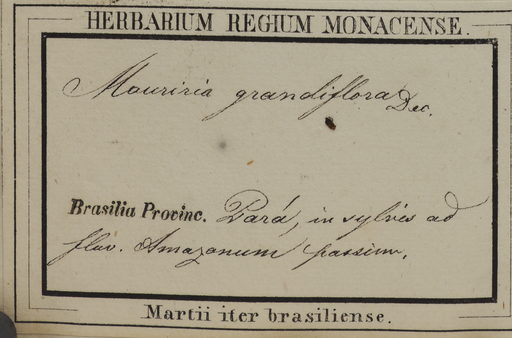 HERBARIUM REGIUM MONACENSE.
Mouriria grandiflora Dec.
Brasilia Provinc. Pará, in sylvis ad
fluv. Amazonum passim.
Martii iter brasiliense.